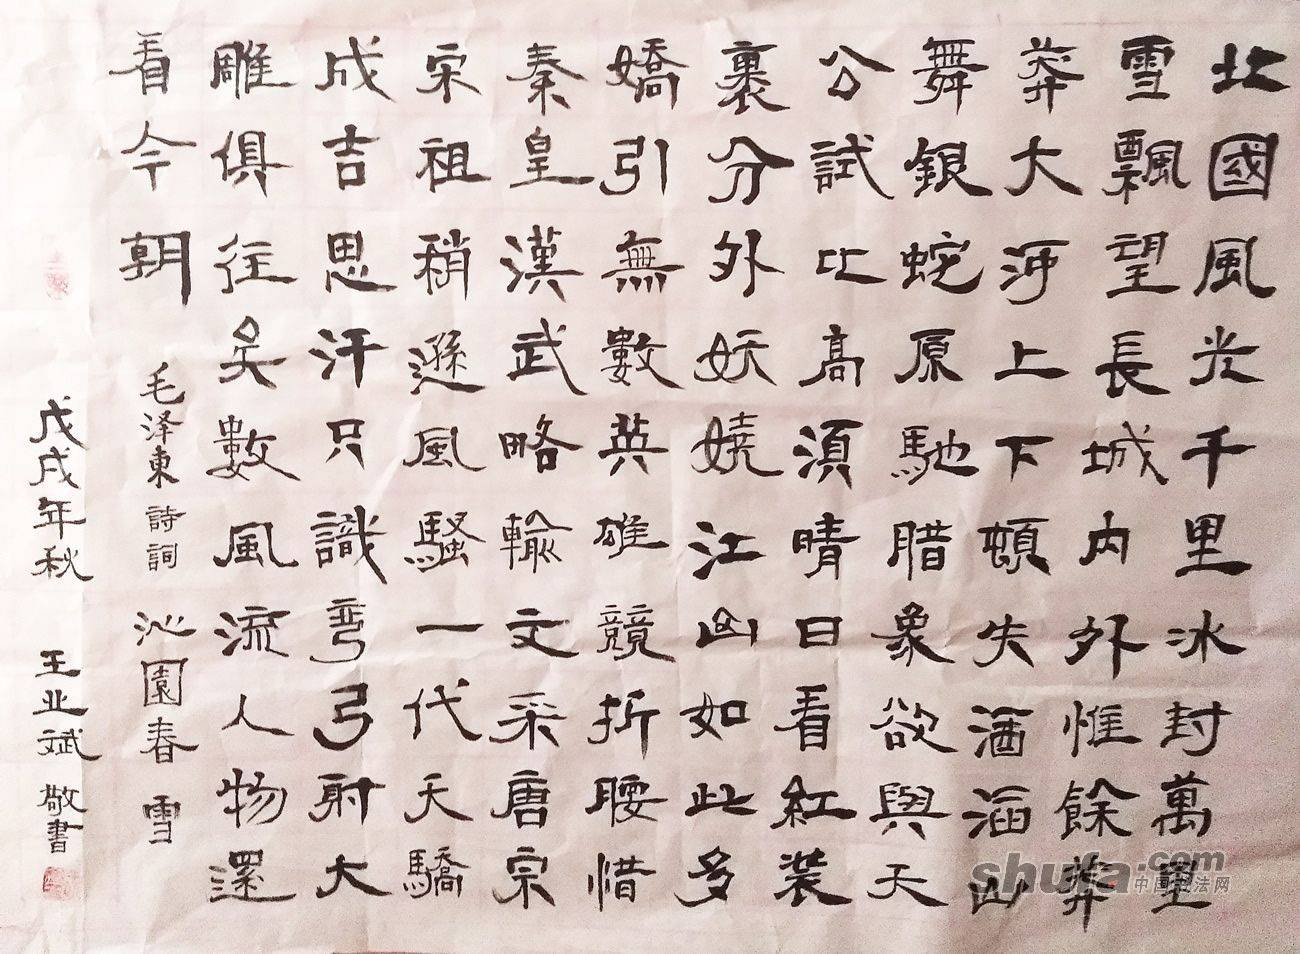 北國風光千里冰封萬里
雪飄望長城内外惟餘莽
莽大河上下頓失滔滔山
舞銀蛇原馳腊象欲與天
公試比高須晴日看紅装
裹分外妖嬈江山如此多
嬌引無數英雄競折腰惜
秦皇漢武略輸文采唐宗
宋祖稍遜風騷一代天驕
成吉思汗只識彎弓射大
雕俱往矣數風流人物還
看今朝 毛泽東詩詞 沁園春 雪
戊戌年秋 王业斌 敬書
shufa.com
中国书法网